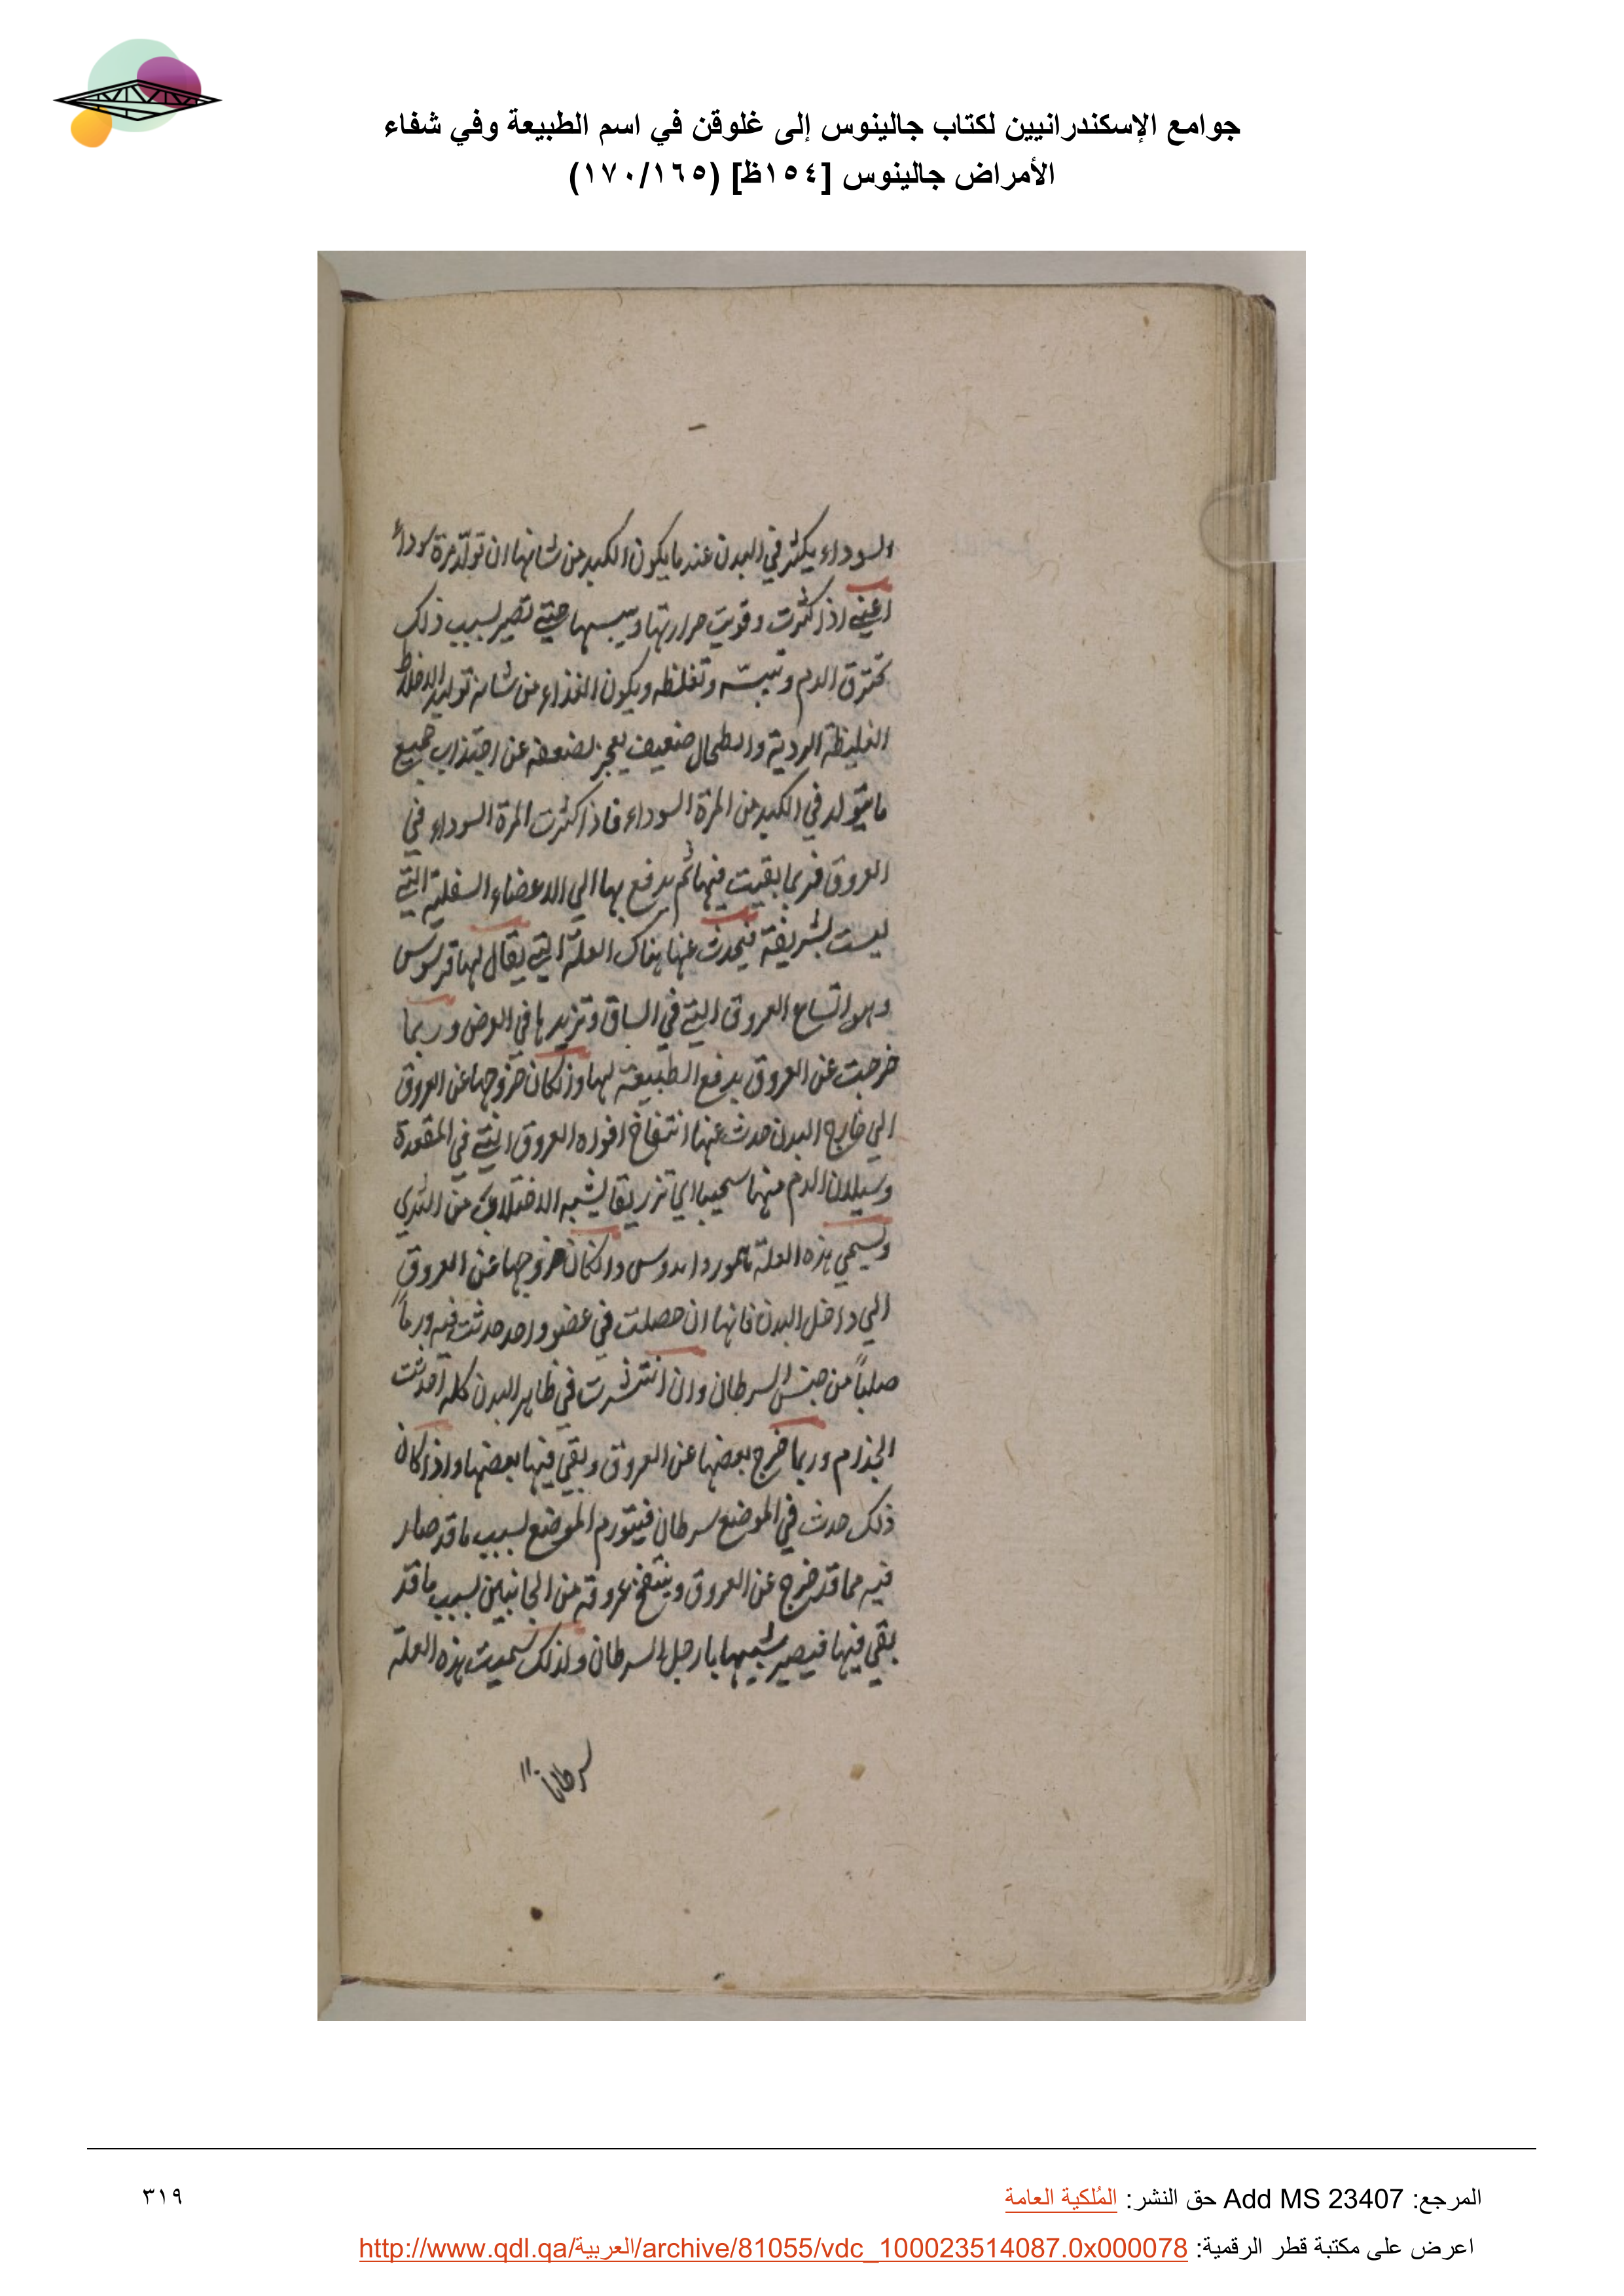 جوامع الإسكندرانيين لكتاب جالينوس إلى غلوقن في اسم الطبيعة وفي شفاء
الأمراض جالينوس [١٥٤ظ] (١٦٥/١٧٠)
السوداء يكثر في البدن عند ما يكون الكبد من شانها ان تولد مرة سوداء
اعني اذا كثرت وقويت حرارتها ويبسها حتي تصير لسبب ذلك
تحترق الدم وتيبسه وتغلظه ويكون الغذاء من شانه توليد الاخلاط
الغليظة الردية والطحال ضعيف يعجز لضعفه عن اجتذاب جميع
ما يتولد في الكبد من المرة السوداء فاذا كثرت المرة السوداء في
العروق فربما بقيت فيها ثم يدفع بها الي الاعضاء السفلية التي
ليست بشريفة فيحدث عنها هناك العلة التي يقال لها قرسوس
وهو اتساع العروق التي في الساق وتزيدها في العرض وربما
خرجت عن العروق بدفع الطبيعة لها واذا كان خروجها عن العروق
الي خارج البدن حدث عنها انتفاخ افواه العروق التي في المقعدة
وسيلان الدم منها سحيبا اي تزريقا يشبه الاختلاف من الثدي
ويسمي هذه العلة وان كان خروجها عن العروق
الي داخل البدن فانها ان حصلت في عضو واحد حدثت فيه ورماً
صلباً من جنس السرطان وان انتشرت في ظاهر البدن كله احدثت
الجذام وربما خرج بعضها عن العروق وبقي فيها بعضها واذا كان
ذلك حدث في الموضع سرطان فيتورم الموضع لسبب ما قد صار
فيه مما قد خرج عن العروق وينتفخ عروقه من الجانبين لسبب ما قد
بقي فيها فيصير شبيها بارجل السرطان ولذلك سميت هذه العلة
سرطانا
المرجع: Add MS 23407 حق النشر: المُلكية العامة
٣١٩
اعرض على مكتبة قطر الرقمية: http://www.qdl.qa/العربية/archive/81055/vdc_100023514087.0x000078